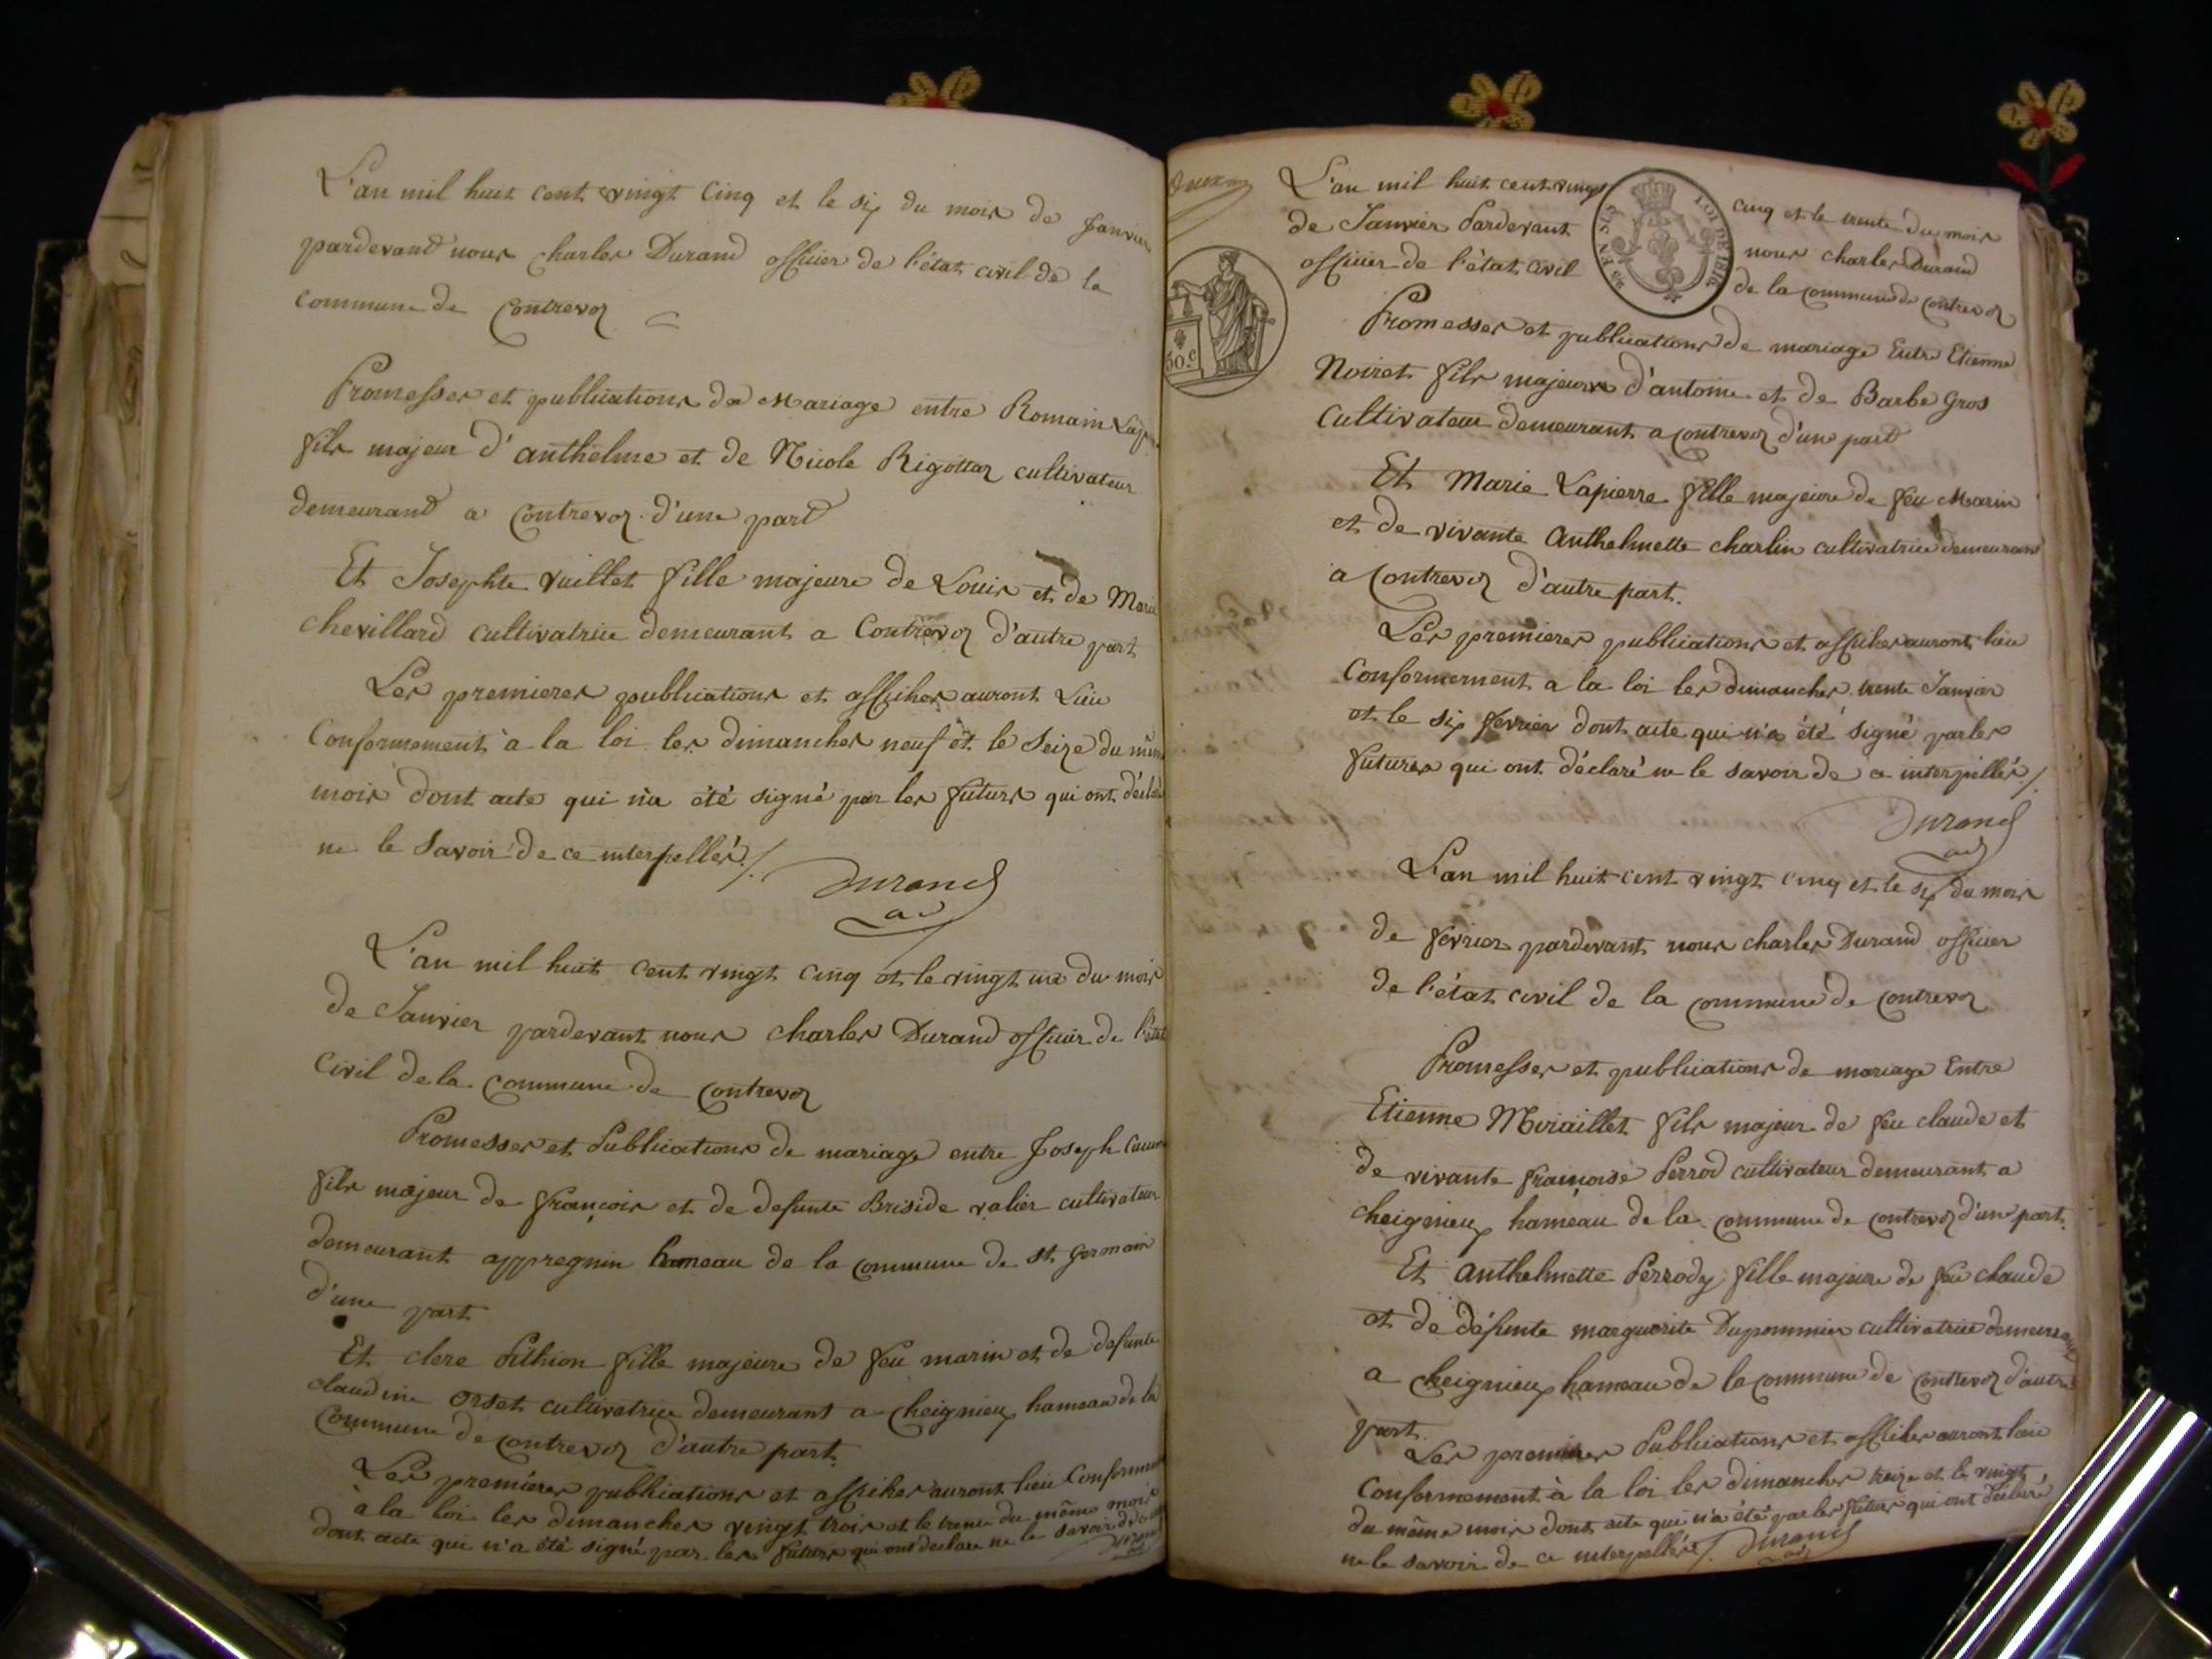 L'an mil huit cent vingt cinq et le six du mois de Janvier
pardevant nous charles Durand officier de l'état civil de la
commune de Contrevoz
Promesses et publications de Mariage entre Romain
fils majeur d'anthelme et de Nicole Rigottaz cultivateur
demeurant a Contrevoz d'une part
Et Josephte vuillet fille majeure de Louis et de Marie
chevillard cultivatrice demeurant a Contrevoz d'autre part
Les premieres publications et affiches auront Lieu
Conformement à la loi les dimanches neuf et le Seize du même
mois dont acte qui n'a été signé par les futurs qui ont déclaré
ne le Savoir de ce interpellés ./.
Durand
adj
L'an mil huit cent vingt cinq et le vingt un du mois
de Janvier pardevant nous charles Durand officier de l'état
Civil de la commune de Contrevoz
Promesses et Publications de mariage entre Joseph
fils majeur de françois et de defunte Briside valier cultivateur
demeurant appregnin hameau de la commune de st germain
d'une part
Et clere Pithion fille majeure de feu marin et de defunte
claudine orset cultivatrice demeurant a cheignieu hameau de la
Commune de contrevoz d'autre part.
Les premières publications et affiches auront lieu Conformement
à la loi les dimanches vingt trois et le trente du même mois
dont acte qui n'a été signé par les futurs qui ont declare ne le savoir de ce
Durand
adj
L'an mil huit cent vingt cinq et le trente du mois
de Janvier Pardevant nous charles Durand
officier de l'état civil de la commune de contrevoz
85 EN SUS
LOI DE 1816
50.c
Promesses et publications de mariage Entre Etienne
Noiret fils majeur d'antoine et de Barbe Gros
Cultivateur demeurant a contrevoz d'une part
Et Marie Lapierre fille majeure de feu Marin
et de vivante anthelmette charlin cultivatrice demeurant
a Contrevoz d'autre part.
Les premieres publications et affiches auront lieu
Conformement a la loi les dimanches trente Janvier
et le six fevrier dont acte qui n'a été signé par les
futures qui ont déclaré ne le savoir de ce interpellés ./.
Durand
adj
L'an mil huit cent vingt cinq et le six du mois
de fevrier pardevant nous charles Durand officier
de l'état civil de la commune de contrevoz
Promesses et publications de mariage Entre
Etienne Moiraillet fils majeur de feu claude et
de vivante françoise Perrod cultivateur demeurant a
cheignieu hameau de la commune de contrevoz d'une part.
Et anthelmette Perrody fille majeure de feu claude
et de défunte marguerite Dupommier cultivatrice demeurant
a cheignieu hameau de la commune de contrevoz d'autre
part.
Les premieres Publications et affiches auront lieu
Conformement à la loi les dimanches treize et le vingt
du même mois dont acte qui n'a été par les futurs qui ont déclaré
ne le savoir de ce interpellés ./. Durand
adj